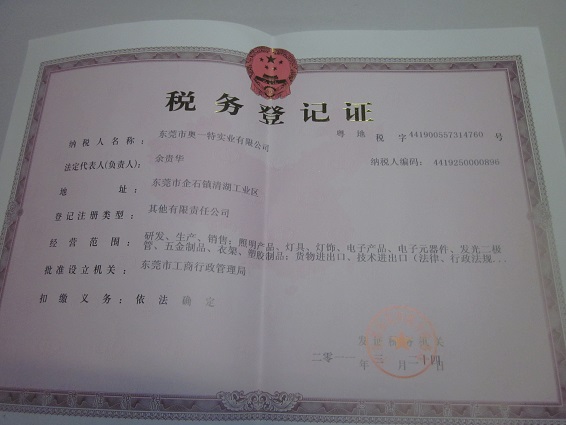 税务登记证
粤地 税 字 441900557314760 号
纳税人名称: 东莞市奥一特实业有限公司
纳税人编码: 4419250000896
法定代表人(负责人): 余贵华
地 址: 东莞市企石镇清湖工业区
登记注册类型: 其他有限责任公司
经营范围: 研发、生产、销售:照明产品、灯具、灯饰、电子产品、电子元器件、发光二极
管、五金制品、衣架、塑胶制品;货物进出口、技术进出口(法律、行政法规...
批准设立机关: 东莞市工商行政管理局
扣缴义务: 依法确定
发证税务机关
二零一一年 三 月 二十四 日